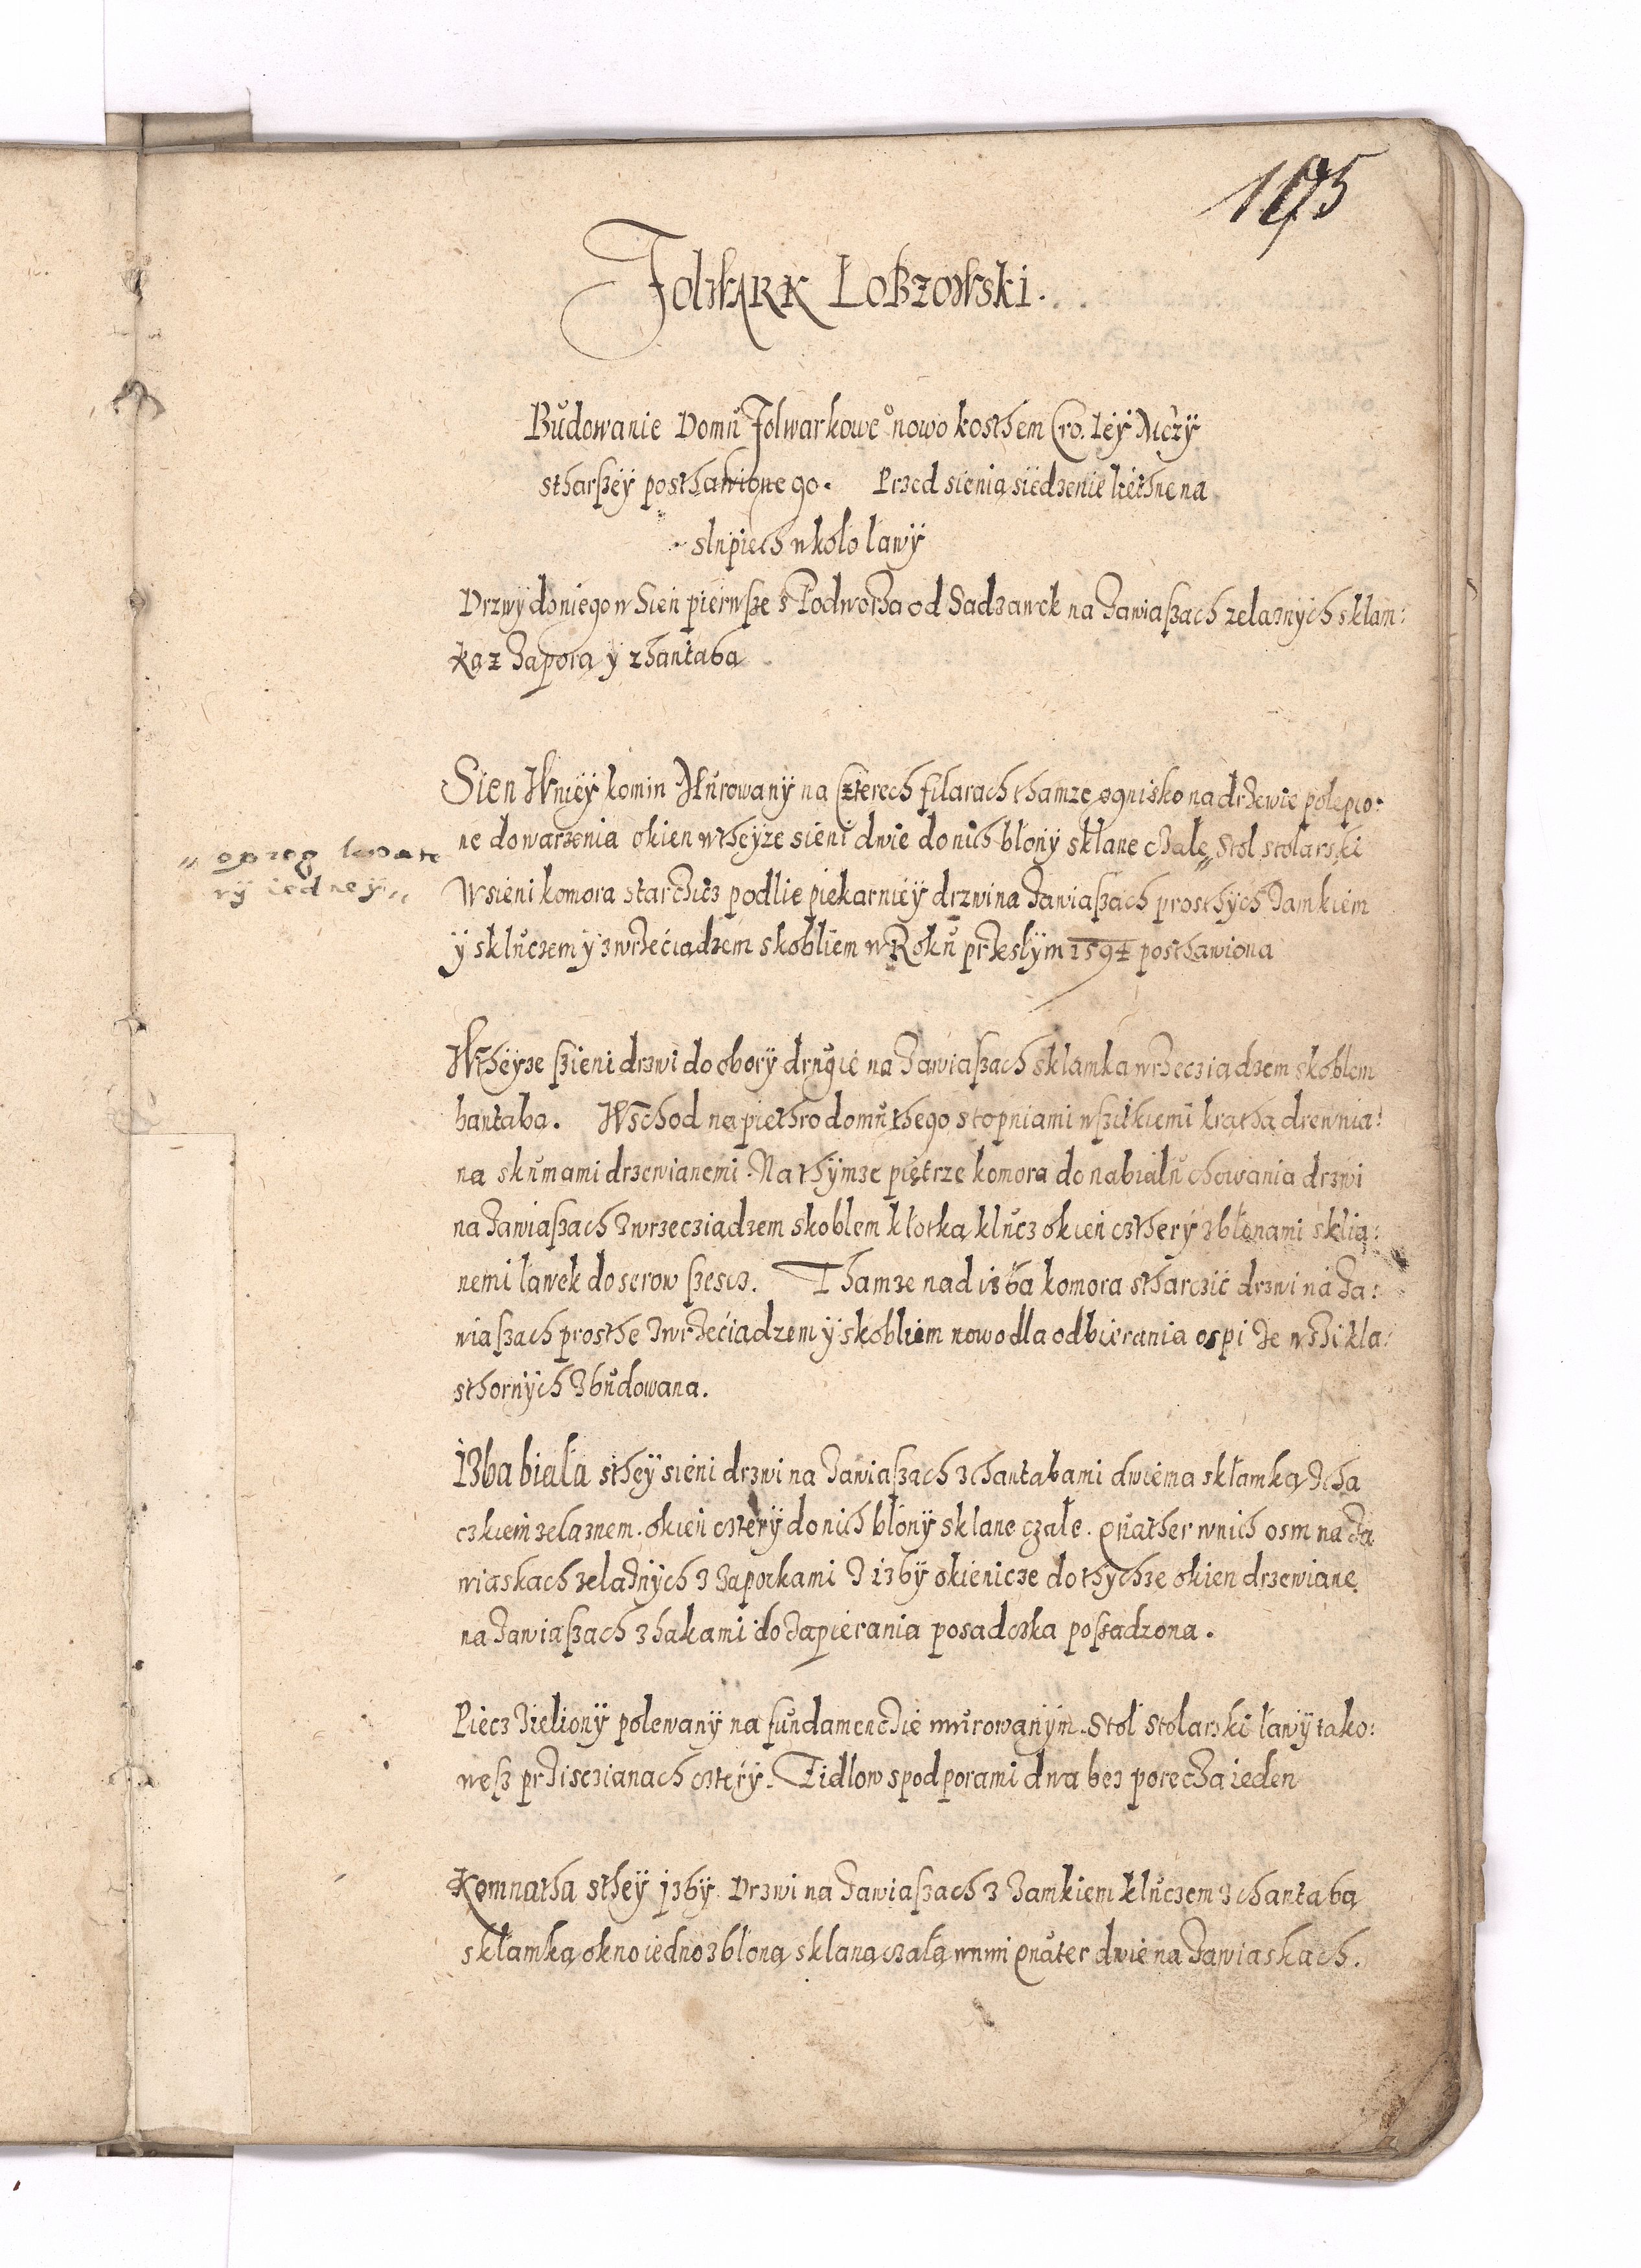 195
Folwark Łobzowski.
Bůdowanie Domů Folwarkowe° nowo kosthem Cro. Iey Mczÿ
stharßeÿ posthawionego. Przed sienią siedzenie liethne na
slupiech wkoło lawÿ
Drzwÿ do niego w Sien pierwsze s Podworza od Sadzawek na Zawiaßach zelaznÿch sklam:
ką z Zaporą ÿ z hantabą
Sien Wnieÿ komin Můrowanÿ na Czterech filarach thamze ognisko na drzewie polepio:
ne do warzenia okien wtheÿze sieni dwie do nich blonÿ sklane czałe „ Stol stolarski
„ oprog kwate
rÿ iedneÿ „
W sieni komora starczicz podlie piekarnieÿ drzwi na Zawiaßach prosthÿch Zamkiem
ÿ skluczem ÿ z wrzeciadzem skobliem w Roků przeslÿm 1594 posthawiona
Wtheÿze ßieni drzwi do oborÿ drugie na Zawiaßach sklamka wrzecziadzem skoblem
hantaba. Wschod na piethro domů thego stopniami wszitkiemi kratha drewnia:
na skůmami drzewianemi. Na thÿmze piętrze komora do nabialů chowania drzwi
na Zawiaßach Zwrzecziadzem skoblem kłotką klůcz okien cztherÿ z błonami sklia:
nemi lawek do serow ßescz. Thamze nad izbą komora stharczic drzwi na Za:
wiaßach prosthe Zwrzeciadzem ÿ skobliem nowo dla odbierania ospi ze wszi kla:
sthornÿch Zbůdowana.
Izba biała stheÿ sieni drzwi na Zawiaßach z chantabami dwiema skłamką Z ha
czkiem zelaznem. okien czterÿ do nich blonÿ sklane czałe. Quather wnich osm na Za
wiaskach zelaznÿch z Zaporkami Z izbÿ okienicze do thÿchze okien drzewiane
na Zawiaßach z hakami do Zapierania posadczka poßadzona.
Piecz Zielionÿ polewanÿ na fůndamencie můrowanÿm. Stol stolarski ławÿ tako:
weß prziscianach czterÿ. Zidlow spodporami dwa bez porecza ieden
Komnatha stheÿ izbÿ. Drzwi na Zawiaßach z Zamkiem klůczem z chantabą
skłamką okno iedno z bloną sklaną czałą wnim Quater dwie na Zawiaskach.